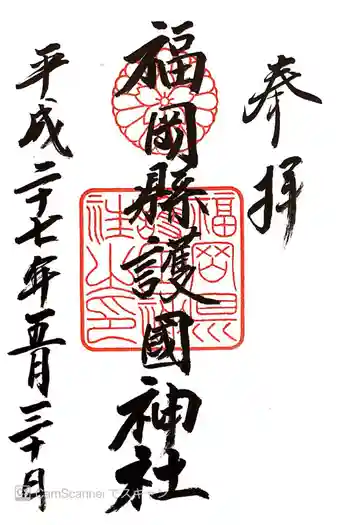 奉拝
福岡縣護國神社
平成二十七年五月三十日
CamScanner でスキャン